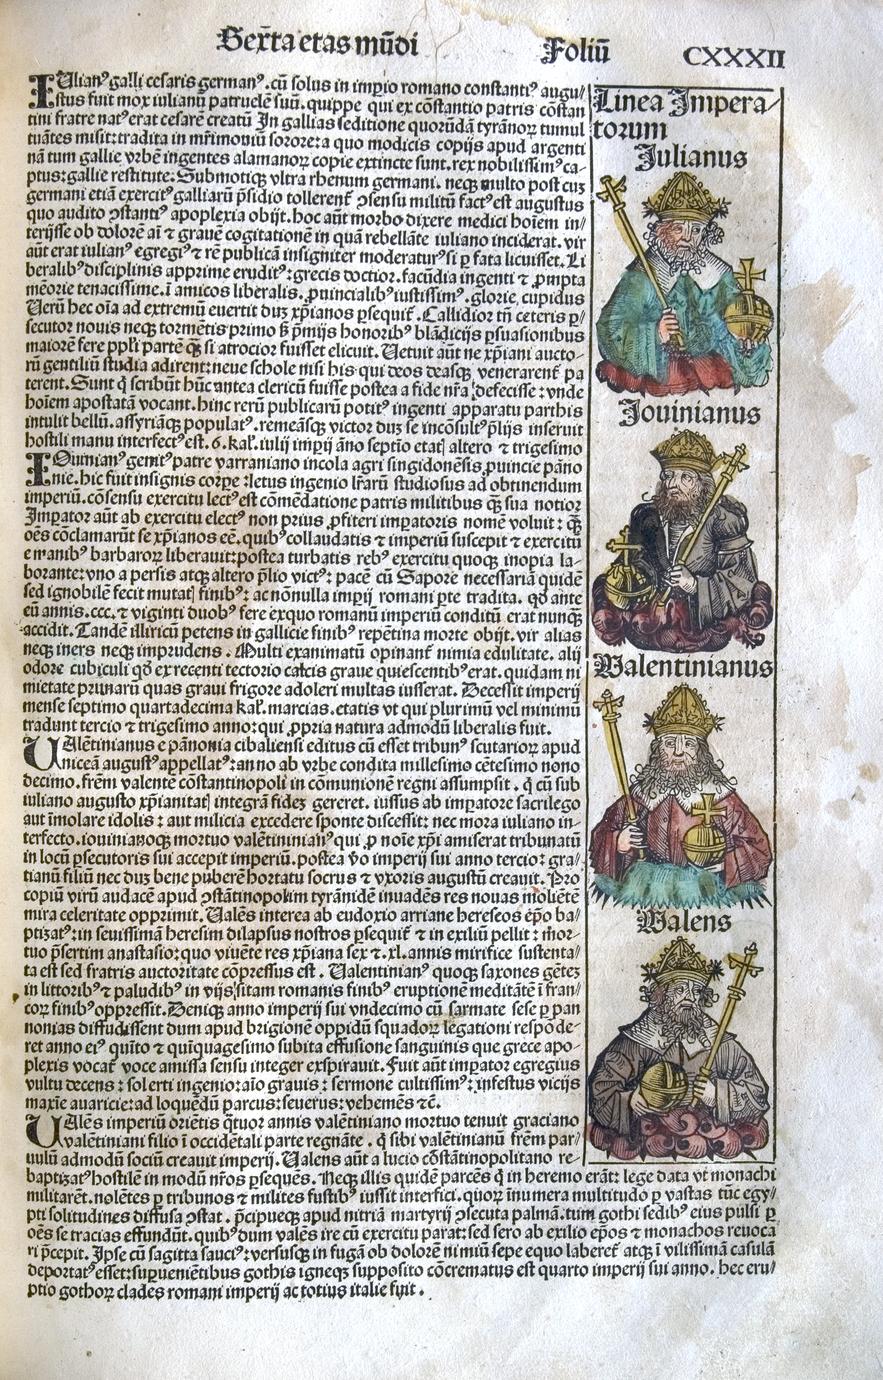 Sexta etas mūdi Foliū CXXXII
Linea Impera/
torum
Julianus
Jouinianus
Walentinianus
Walens
IUlianꝰ galli cesaris germanꝰ. cū solus in imꝑio romano constantiꝰ augu/
stus fuit mox iulianū patruelē suū. quippe qui ex cōstantio patris cōstan
tini fratre natꝰ erat cesarē creatū In gallias seditione quorūdā tyrānoꝝ tumul
tuātes misit: tradita in mr̄imoniū sorore: a quo modicis copijs apud argenti
nā tum gallie vrbē ingentes alamanoꝝ copie extincte sunt. rex nobilissimꝰ ca-
ptus: gallie restitute. Submotiqꝫ vltra rhenum germani. neqꝫ multo post cuꝫ
germani etiā exercitꝰ galliarū p̄sidio tollerent᷑ ↄsensu militū factꝰ est augustus
quo audito ↄstantiꝰ apoplexia obijt. hoc aūt morbo dixere medici hoīem in/
terijsse ob dolorē aī ⁊ grauē cogitationē in quā rebellāte iuliano inciderat. vir
aūt erat iulianꝰ egregiꝰ ⁊ rē publicā insigniter moderaturꝰ si ꝑ fata licuisset. Li
beralibꝰ disciplinis apprime eruditꝰ: grecis doctior. facūdia ingenti ⁊ ꝓmpta
mēorie tenacissime. ī amicos liberalis. ꝓuincialibꝰ iustissimꝰ. glorie cupidus
Verū hec oīa ad extremū euertit duꝫ xp̄ianos ꝑsequit᷑. Callidior tn̄ ceteris ꝑ/
secutor nouis neqꝫ tormētis primo ſꝫ p̄mijs honoribꝰ blādicijs ꝑsuasionibus
maiorē fere pp̄li partē qꝫ si atrocior fuisset elicuit. Uetuit aūt ne xp̄iani aucto-
rū gentiliū studia adirent: neue schole nisi his qui deos deasqꝫ venerarent᷑ pa
terent. Sunt q̄ scribūt hūc antea clericū fuisse postea a fide nr̄a defecisse: vnde
hoīem apostatā vocant. hinc rerū publicarū potitꝰ ingenti apparatu parthis
intulit bellū. assyriāqꝫ populatꝰ. remeāsqꝫ victor duꝫ se incōsultꝰ p̄lijs inseruit
hostili manu interfectꝰ est. 6. kal̄. iulij imꝑij āno septīo etatꝭ altero ⁊ trigesimo
IOuinianꝰ genitꝰ patre varraniano incola agri singidonēsis ꝓuincie pāno
nie. hic fuit insignis corꝑe: letus ingenio lr̄arū studiosus ad obtinendum
imperiū. cōsensu exercitu lectꝰ est cōmēdatione patris militibus qꝫ sua notior
Imꝑator aūt ab exercitu electꝰ non prius ꝓfiteri imꝑatoris nomē voluit: qꝫ
oēs cōclamarūt se xp̄ianos eē. quibꝰ collaudatis ⁊ imperiū suscepit ⁊ exercitū
e manibꝰ barbaroꝝ liberauit: postea turbatis rebꝰ exercitu quoqꝫ inopia la-
borante: vno a persis atqꝫ altero p̄lio victꝰ: pacē cū Sapore necessariā quidē
sed ignobilē fecit mutatꝭ finibꝰ: ac nōnulla imꝑij romani ꝑte tradita. qd̄ ante
eū annis. ccc. ⁊ viginti duobꝰ fere exquo romanū imperiū conditū erat nunqꝫ
accidit. Tandē illiricū petens in gallicie finibꝰ repētina morte obijt. vir alias
neqꝫ iners neqꝫ imprudens. Multi exanimatū opinant᷑ nimia edulitate. alij
odore cubiculi qd̄ ex recenti tectorio calcis graue quiescentibꝰ erat. quidam ni
mietate prunarū quas graui frigore adoleri multas iusserat. Decessit imperij
mense septimo quartadecima kal̄. marcias. etatis vt qui plurimū vel minimū
tradunt tercio ⁊ trigesimo anno: qui ꝓpria natura admodū liberalis fuit.
UAlētinianus e pānonia cibaliensi editus cū esset tribunꝰ scutarioꝝ apud
niceā augustꝰ appellatꝰ: anno ab vrbe condita millesimo cētesimo nono
decimo. frēm valentē cōstantinopoli in cōmunionē regni assumpsit. q̇ cū sub
iuliano augusto xp̄ianitatꝭ integrā fideꝫ gereret. iussus ab imꝑatore sacrilego
aut īmolare idolis: aut milicia excedere sponte discessit: nec mora iuliano in-
terfecto. iouinianoqꝫ mortuo valētininianꝰ qui ꝓ noīe xp̄i amiserat tribunatū
in locū ꝑsecutoris sui accepit imperiū. postea v̄o imperij sui anno tercio: gra/
tianū filiū nec duꝫ bene puberē hortatu socrus ⁊ vxoris augustū creauit. Pro
copiū virū audacē apud ↄstātinopolim tyrānidē inuadēs res nouas moliētē
mira celeritate opprimit. Ualēs interea ab eudoxio arriane hereseos ep̄o ba/
ptizatꝰ: in seuissimā heresim dilapsus nostros ꝑsequit᷑ ⁊ in exiliū pellit: mor-
tuo p̄sertim anastasio: quo viuēte res xp̄iana sex ⁊. xl. annis mirifice sustenta/
ta est sed fratris auctoritate cōpressus est. Ualentinianꝰ quoqꝫ saxones gēteꝫ
in littoribꝰ ⁊ paludibꝰ in vijs sitam romanis finibꝰ eruptionē meditātē ī fran/
coꝝ finibꝰ oppressit. Deniqꝫ anno imperij sui vndecimo cū sarmate sese ꝑ pan
nonias diffudissent dum apud brigionē oppidū squadoꝝ legationi respōde-
ret anno eiꝰ quīto ⁊ quīquagesimo subita effusione sanguinis que grece apo-
plexis vocat᷑ voce amissa sensu integer exspirauit. Fuit aūt imꝑator egregius
vultu decens: solerti ingenio: aīo grauis: sermone cultissimꝰ: infestus vicijs
maxīe auaricie: ad loquēdū parcus: seuerus: vehemēs ⁊c̄.
UAlēs imperiū oriētis q̇tuor annis valētiniano mortuo tenuit graciano
valētiniani filio ī occidētali parte regnāte. q̇ sibi valētinianū frēm par/
uulū admodū sociū creauit imperij. Ualens aūt a lucio cōstātinopolitano re-
baptizatꝰ hostilē in modū nr̄os ꝑsequēs. Neqꝫ illis quidē parcēs q̇ in heremo erāt: lege data vt monachi
militarēt. nolētes ꝑ tribunos ⁊ milites fustibꝰ iussit interfici. quoꝝ īnumera multitudo ꝑ vastas tūc egy/
pti solitudines diffusa ↄstat. p̄cipueqꝫ apud nitriā martyrij ↄsecuta palmā. tum gothi sedibꝰ eius pulsi ꝑ
oēs se tracias effundūt. quibꝰ dum valēs ire cū exercitu parat: sed sero ab exilio ep̄os ⁊ monachos reuoca
ri p̄cepit. Ipse cū sagitta sauciꝰ: versusqꝫ in fugā ob dolorē nimiū sepe equo laberet᷑ atqꝫ ī vilissimā casulā
deportatꝰ esset: suꝑueniētibus gothis igneqꝫ supposito cōcrematus est quarto imperij sui anno. hec eru/
ptio gothoꝝ clades romani imperij ac totius italie fuit.